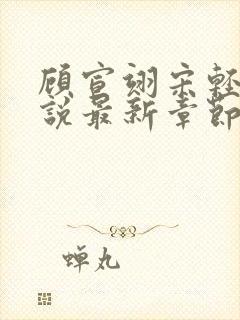 顧宣翊宋輕
說最新章節
蟬丸